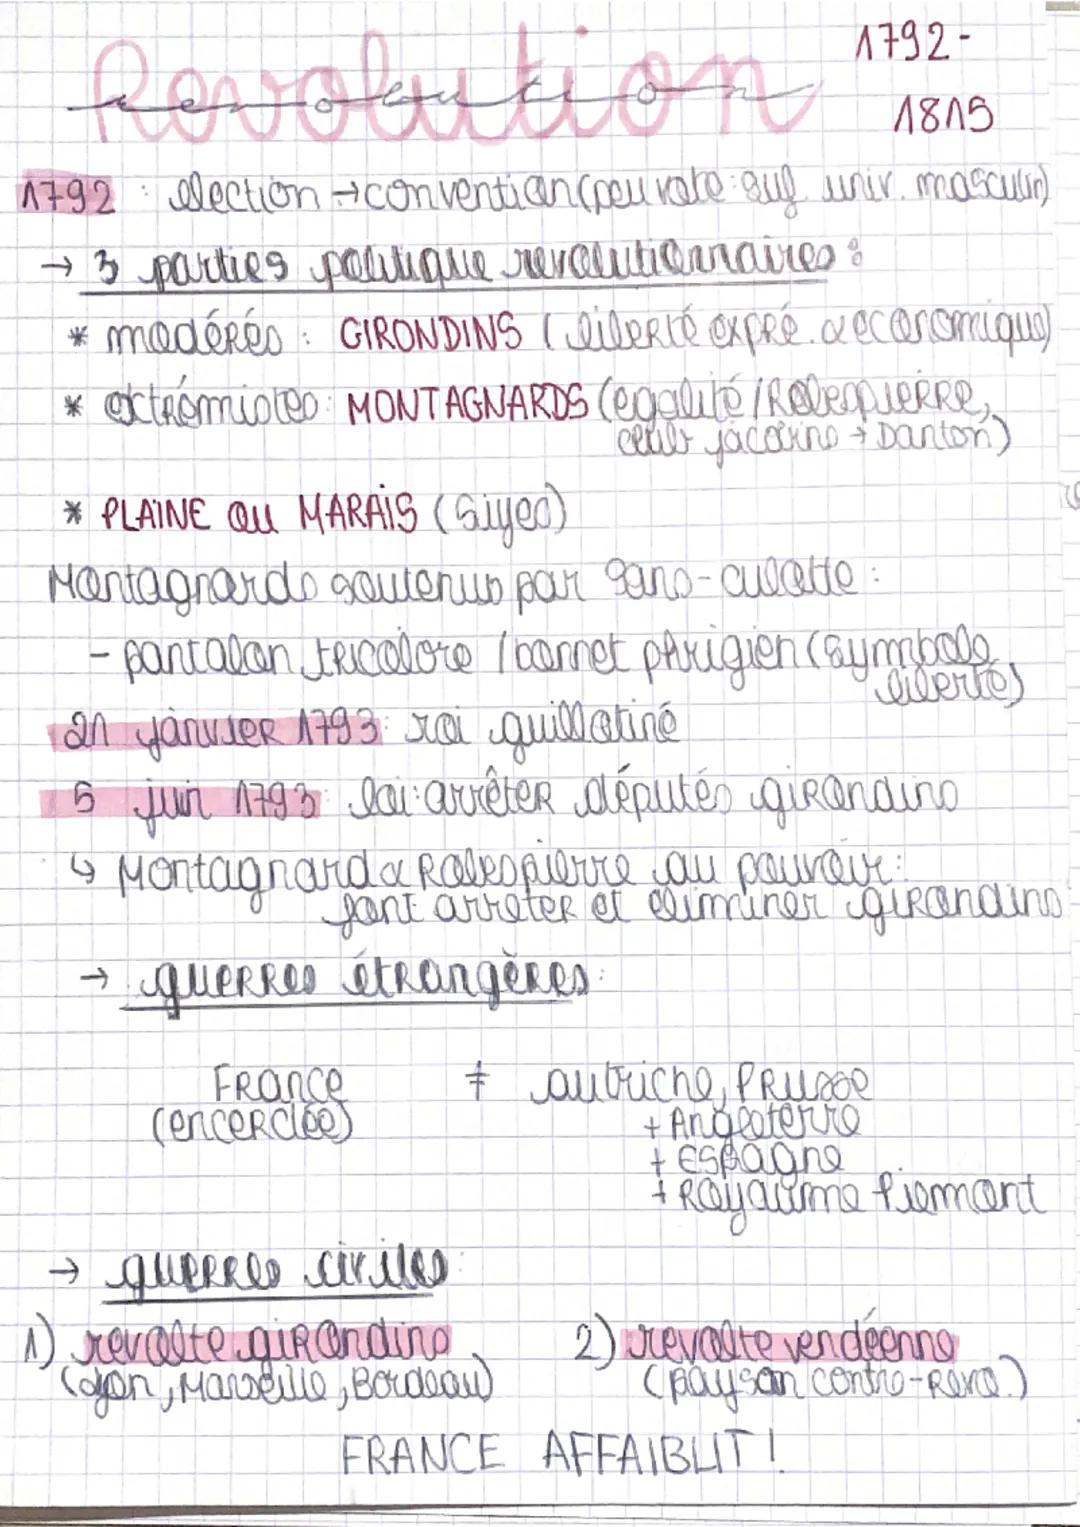 Revolution
1792-
1815
1792 : election → convention (peu vote: suf. univ. masculin)
→ 3 parties politique revolutionnaires :
* modérés : GIRONDINS (liberté expré. & economique)
* extrémistes : MONTAGNARDS (egalité / Robespierre,
club jacobins + Danton)
* PLAINE ou MARAIS (Siyes)
Montagnards soutenus par sans-culotte :
- pantalon tricolore / bonnet phrigien (symbole
liberté)
21 janvier 1793 : roi guillotiné
5 juin 1793 : loi : arrêter députés girondins
↳ Montagnard & Robespierre au pouvoir :
font arreter et eliminer girondins
→ guerres étrangères :
France ≠ autriche, PRusse
(encerclée) + Angleterre
+ Espagne
+ Royaume Piemont
→ guerres civiles :
1) revolte girondins 2) revolte vendéenne
(Lyon, Marseille, Bordeau) (paysan contre-révo.)
FRANCE AFFAIBLIT !